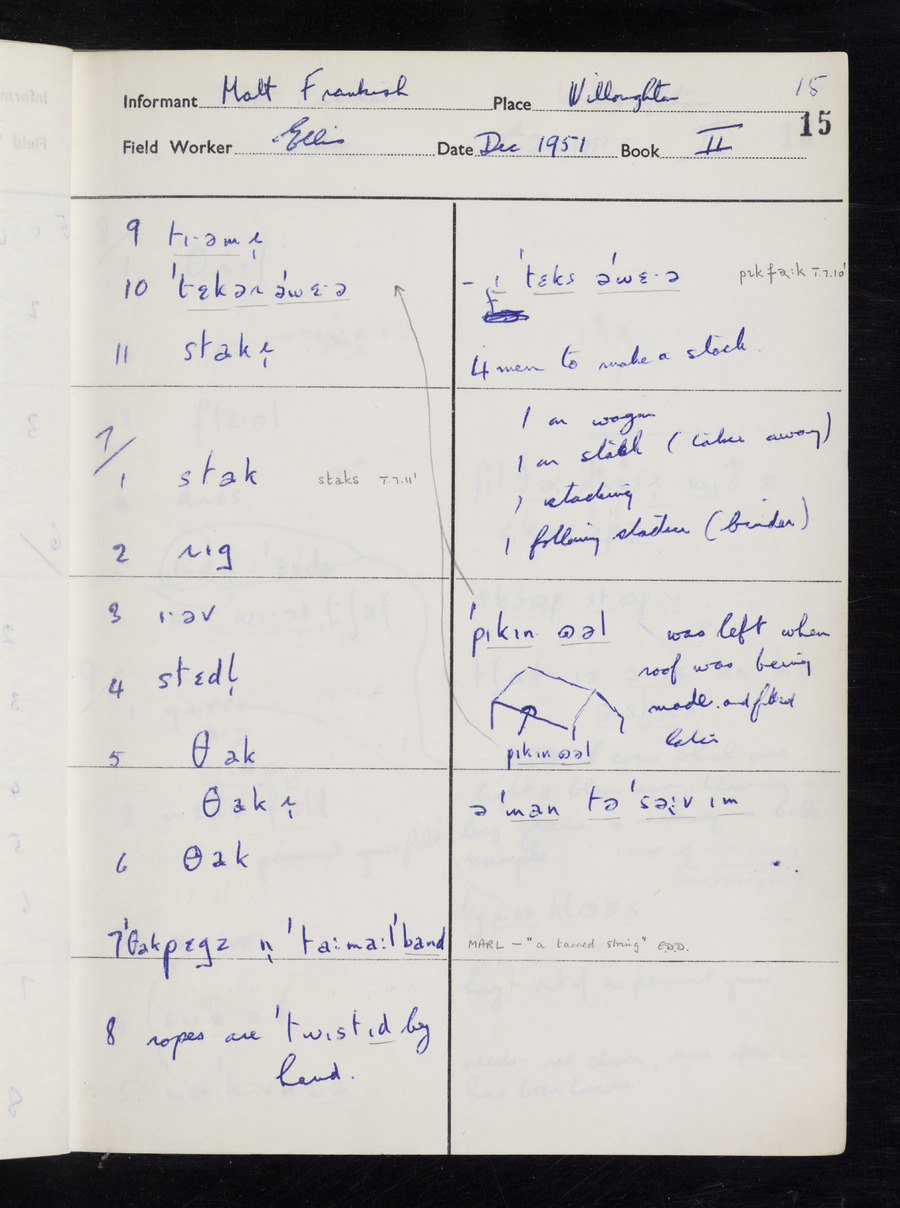 15
Informant Matt Frankish Place Willoughton
15
Field Worker Ellis Date Dec 1951 Book II
9 tɪ·əmɪ̨
10 ˈtɛkəɹ əˈwɛ·ə
11 stakɪ̨
7/
1 stak staks I.7.11'
2 ɹɪg
3 ɹɪ·əv
4 stɛdl̩
5 θak
θakɪ̨
6 θak
7 ˈθakpɛgz n̩ ˈta:ma:lˈband
8 ropes are ˈtwɪstɪd by
hand.
- ɪ ˈtɛks əˈwɛ·ə pɪkfa:k I.7.10'
4 men to make a stack.
1 on wagon
1 on stack (takes away)
1 stacking
1 following stacker (binder)
ˈpɪkɪn· ɷəl was left when
roof was being
made and filled
later
pɪkɪn ɷəl
ə ˈman tə ˈsə:v ɪm
MARL – "a tarred string" E.D.D.